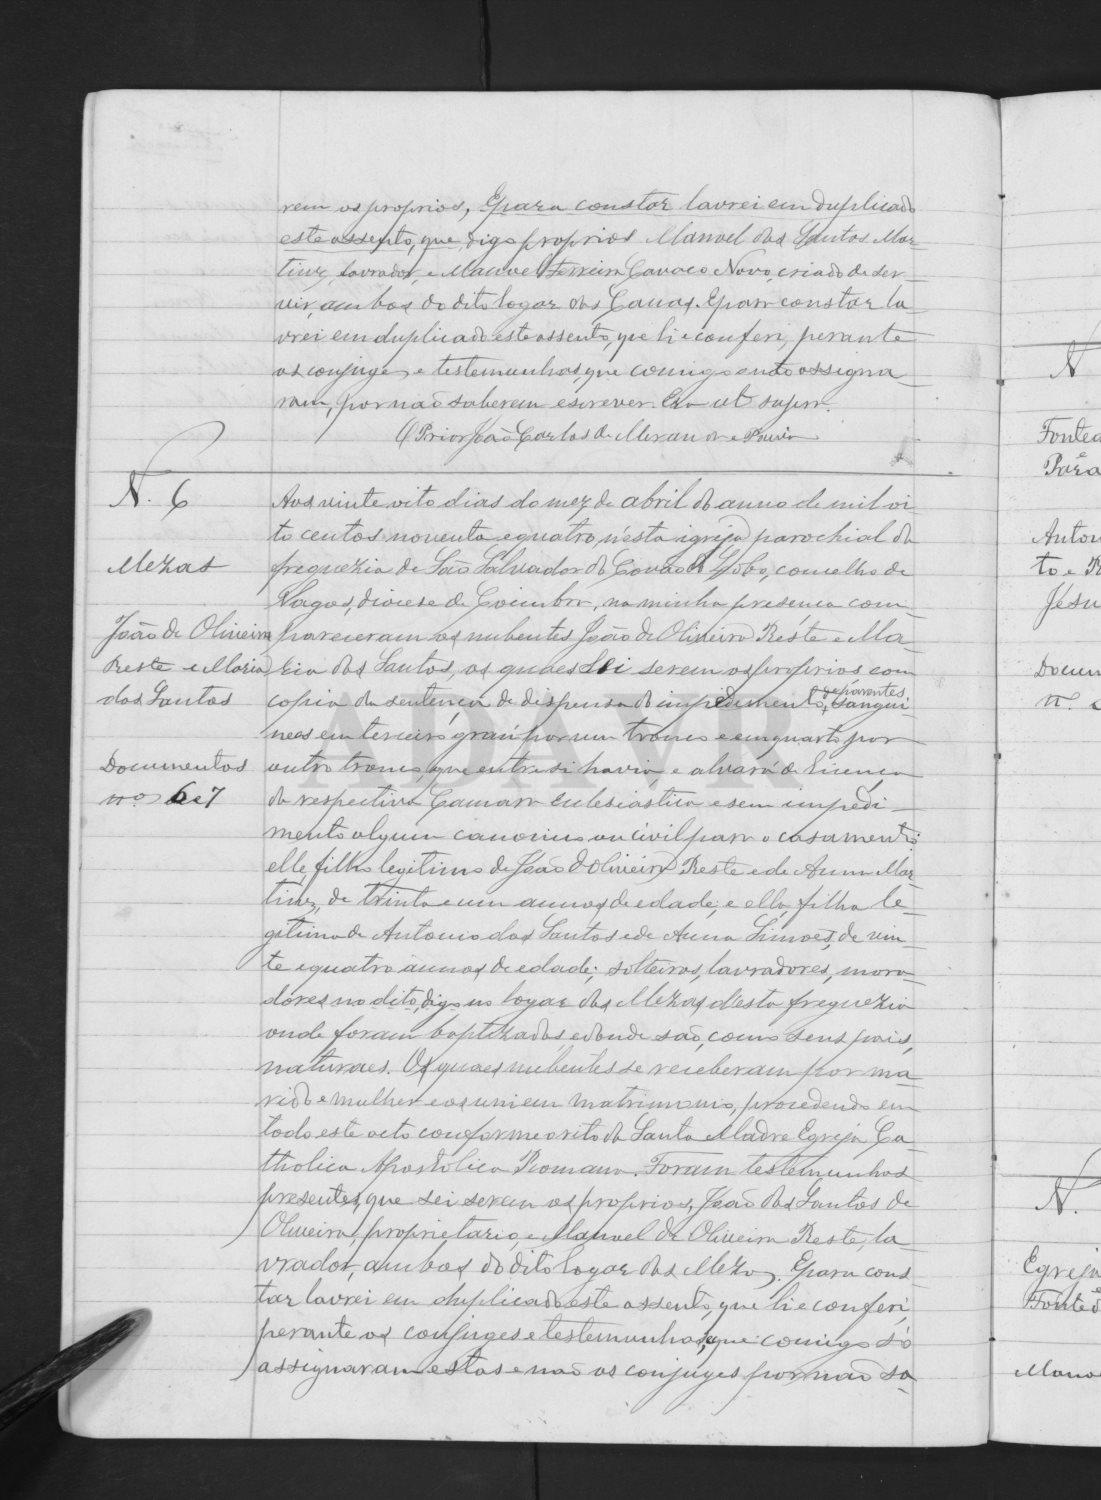 rem os proprios, E para constar lavrei em duplicado
este assento, que, digo proprios Manoel dos Santos Mar-
tinz, lavrador, e Manoel Ferreira Cavaco Novo, criado de ser-
vir, ambos do dito logar das Cavas. E para constar la-
vrei em duplicado este assento, que li e conferi, perante
os conjuges e testemunhas, que comigo não assigna-
ram, por não saberem escrever. Era ut supra.
O Prior João Carlos de Miranda e Paiva
N. 6
Mezas
João de Oliveira
Reste e Maria
dos Santos
Documentos
nos 6 e 7
Aos vinte oito dias do mez de abril do anno de mil oi-
to centos noventa e quatro, n'esta igreja parochial da
freguezia de São Salvador do Covão do Lobo, concelho de
Vagos, diocese de Coimbra, na minha presença com-
pareceram os nubentes João de Oliveira Réste e Ma-
ria dos Santos, os quaes sei serem os proprios com
copia da sentença de dispensa do impedimento de parentes, Sangui-
neos em terceiro gráu por um tronco e em quarto por
outro tronco, que entre si havia, e alvará de licença
da respectiva Camara Eclesiastica e sem impedi-
mento algum canonico ou civil para o casamento:
elle, filho legitimo de João d'Oliveira Reste e de Anna Mar-
tinz, de trinta e um annos de edade; e ella, filha le-
gitima de Antonio dos Santos e de Anna Simoes, de vin-
te e quatro annos de edade; solteiros, lavradores, mora-
dores no dito, digo no logar das Mezas d'esta freguezia
onde foram baptizados, e donde são, como seus pais,
naturaes. Os quaes nubentes se receberam por ma-
rido e mulher e os uni em matrimonio, procedendo em
todo este acto conforme o rito da Santa Madre Egreja Ca-
tholica Apostolica Romana. Foram testemunhas
presentes, que sei serem os proprios, João dos Santos de
Oliveira, proprietario, e Manoel de Oliveira Reste, la-
vrador, ambos do dito logar das Mezas. E para cons-
tar lavrei em duplicado este assento, que li e conferi,
perante os conjuges e testemunhas, que comigo só
assignaram estas e não os conjuges por não sa-
N
Antou
to e R
Jesu
Docum
nº.
N.
Egreja
Manoe
ADAVR